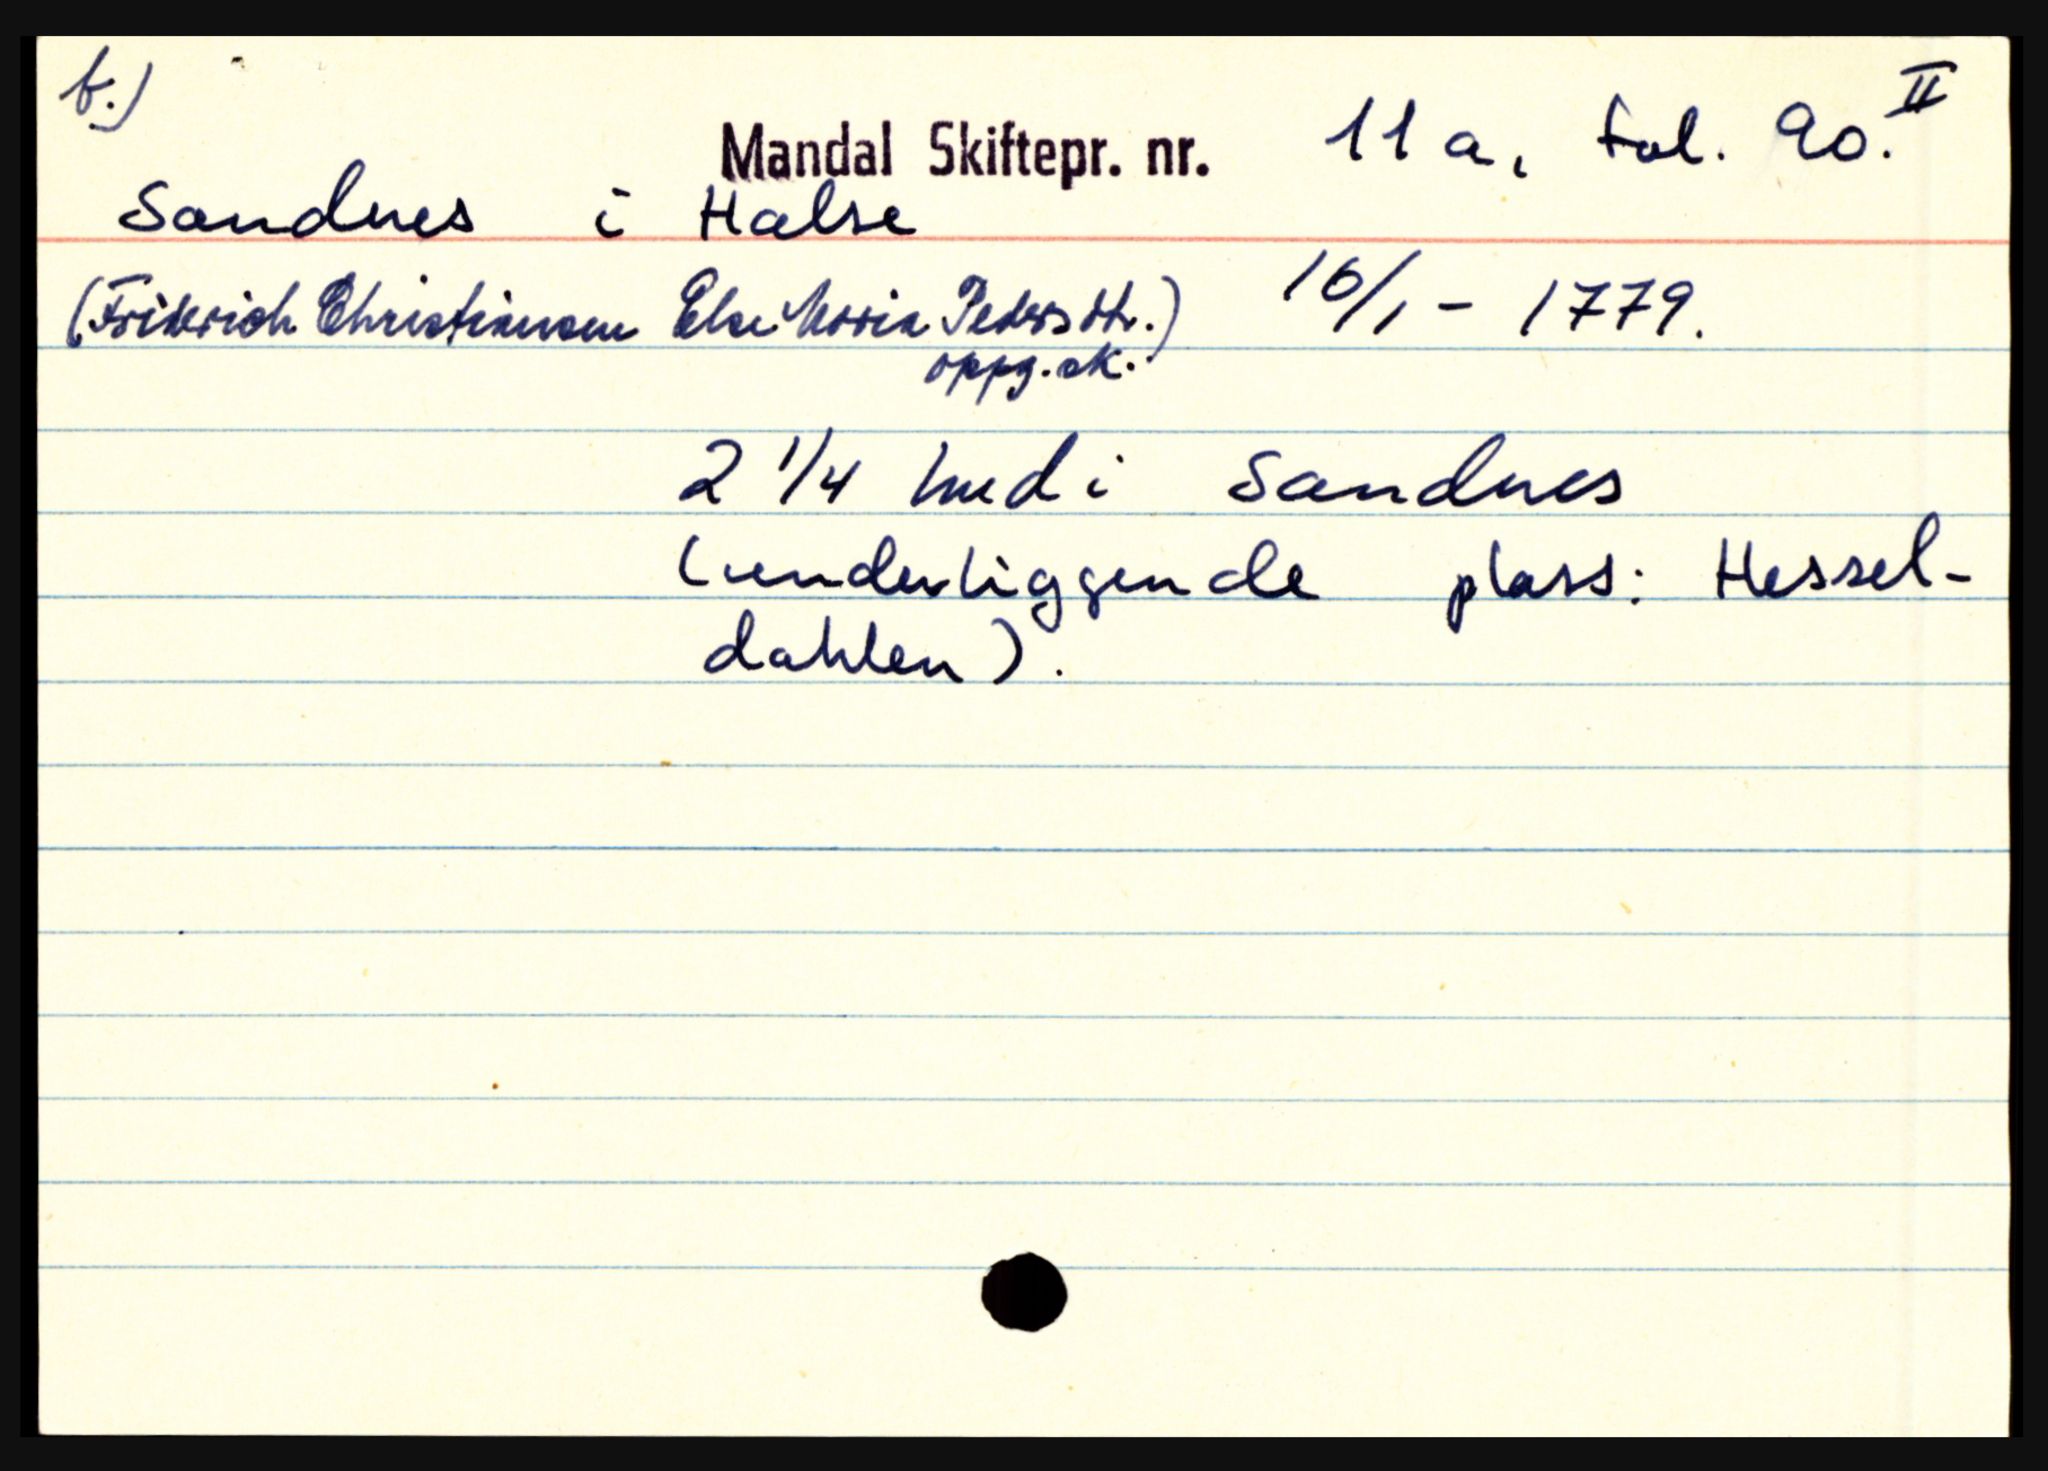 b.)
Mandal Skiftepr. nr. 11 a, fol. 90. II
Sandnes i Halse
(Friderich Christiansen Else Maria Pedersdtr.) 16/1 - 1779.
oppg. sk.
2 1/4 hud i Sandnes
(underliggende plass: Hessel-
dahlen).